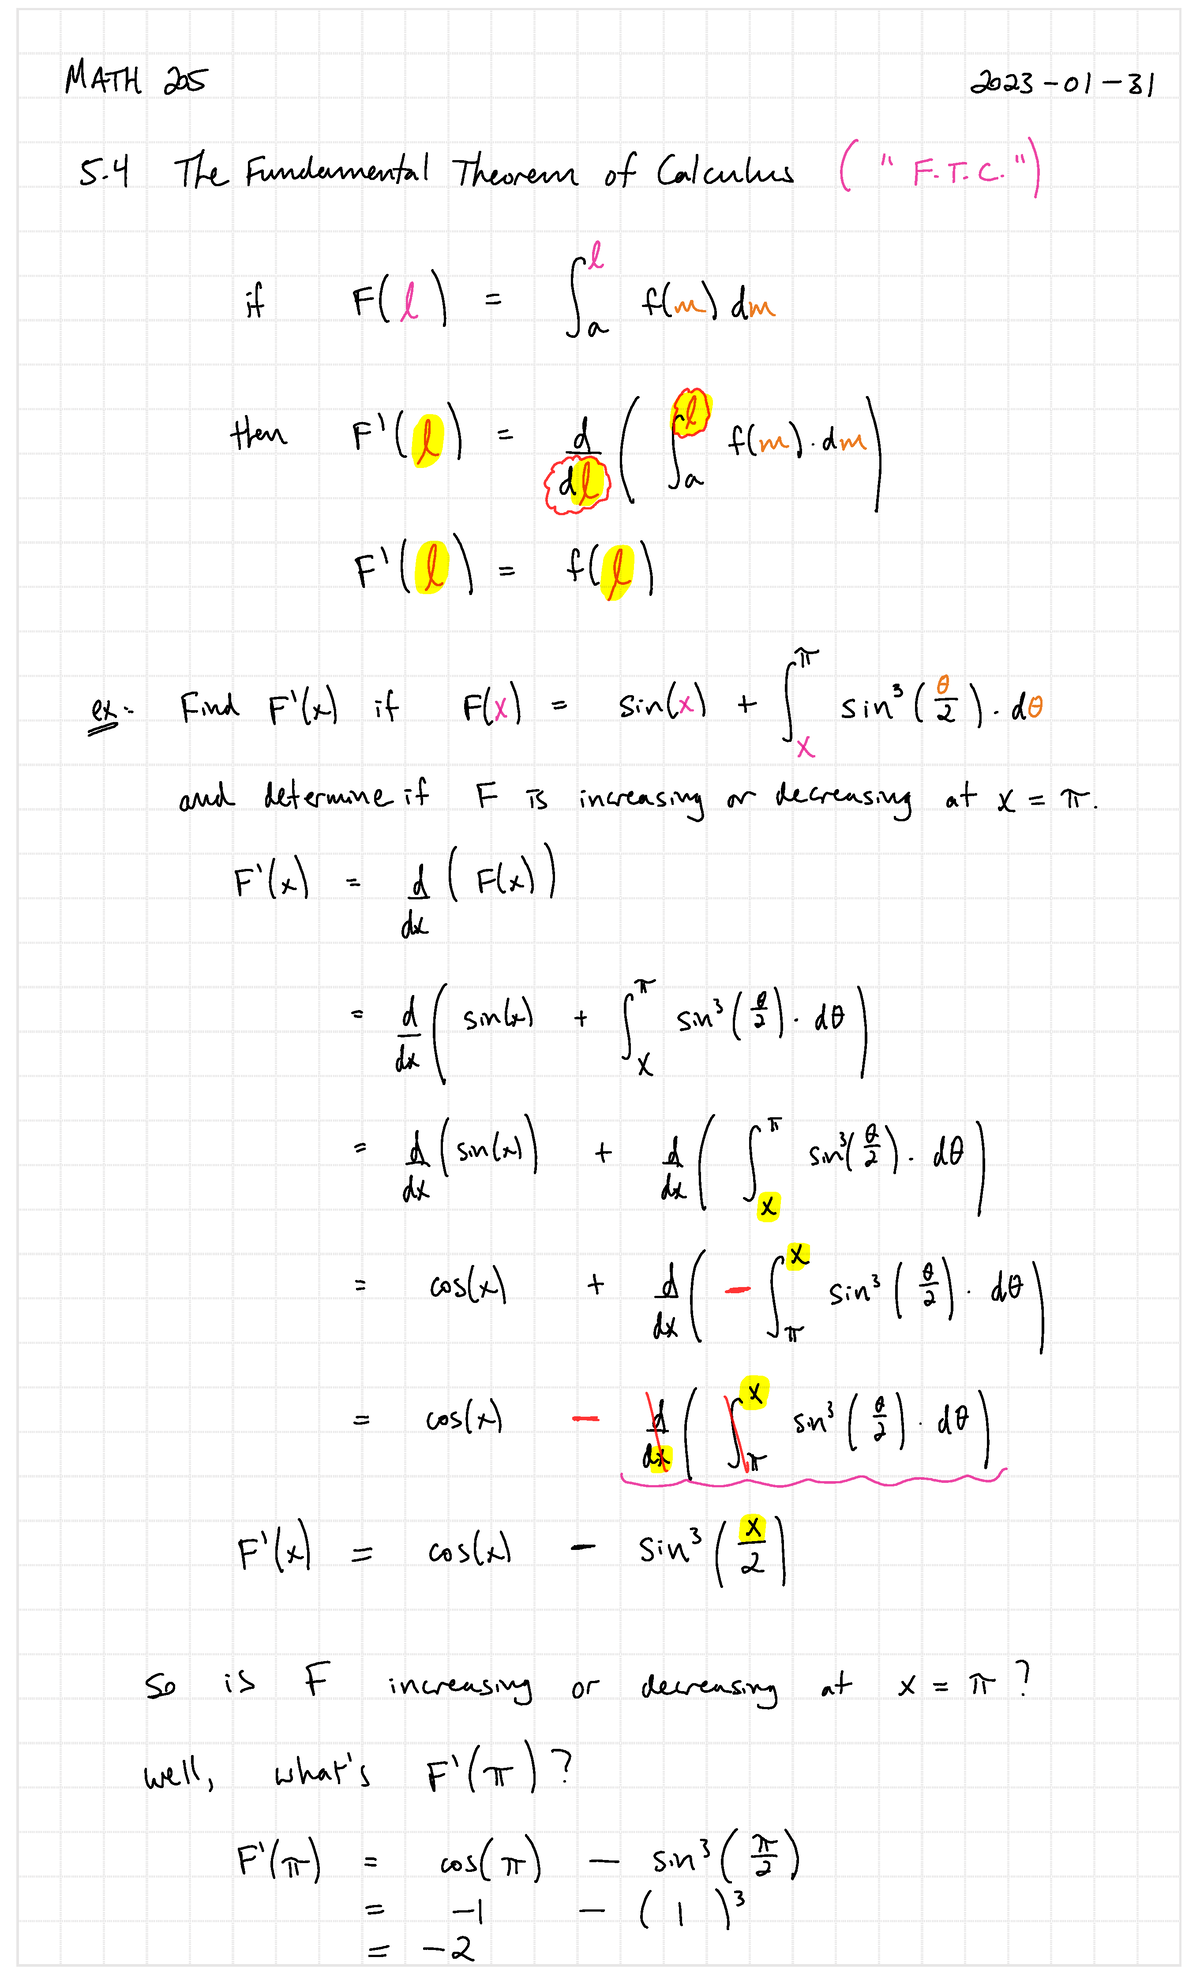 MATH 205 2023-01-31
5.4 The Fundamental Theorem of Calculus ("F.T.C.")
if F(l) = ∫_a^l f(m) dm
then F'(l) = d/dl ( ∫_a^l f(m)·dm )
F'(l) = f(l)
ex: Find F'(x) if F(x) = sin(x) + ∫_x^π sin³(θ/2)·dθ
and determine if F is increasing or decreasing at x = π.
F'(x) = d/dx ( F(x) )
= d/dx ( sin(x) + ∫_x^π sin³(θ/2)·dθ )
= d/dx ( sin(x) ) + d/dx ( ∫_x^π sin³(θ/2)·dθ )
= cos(x) + d/dx ( - ∫_π^x sin³(θ/2)·dθ )
= cos(x) - d/dx ( ∫_π^x sin³(θ/2)·dθ )
F'(x) = cos(x) - sin³(x/2)
So is F increasing or decreasing at x = π?
well, what's F'(π)?
F'(π) = cos(π) - sin³(π/2)
= -1 - (1)³
= -2